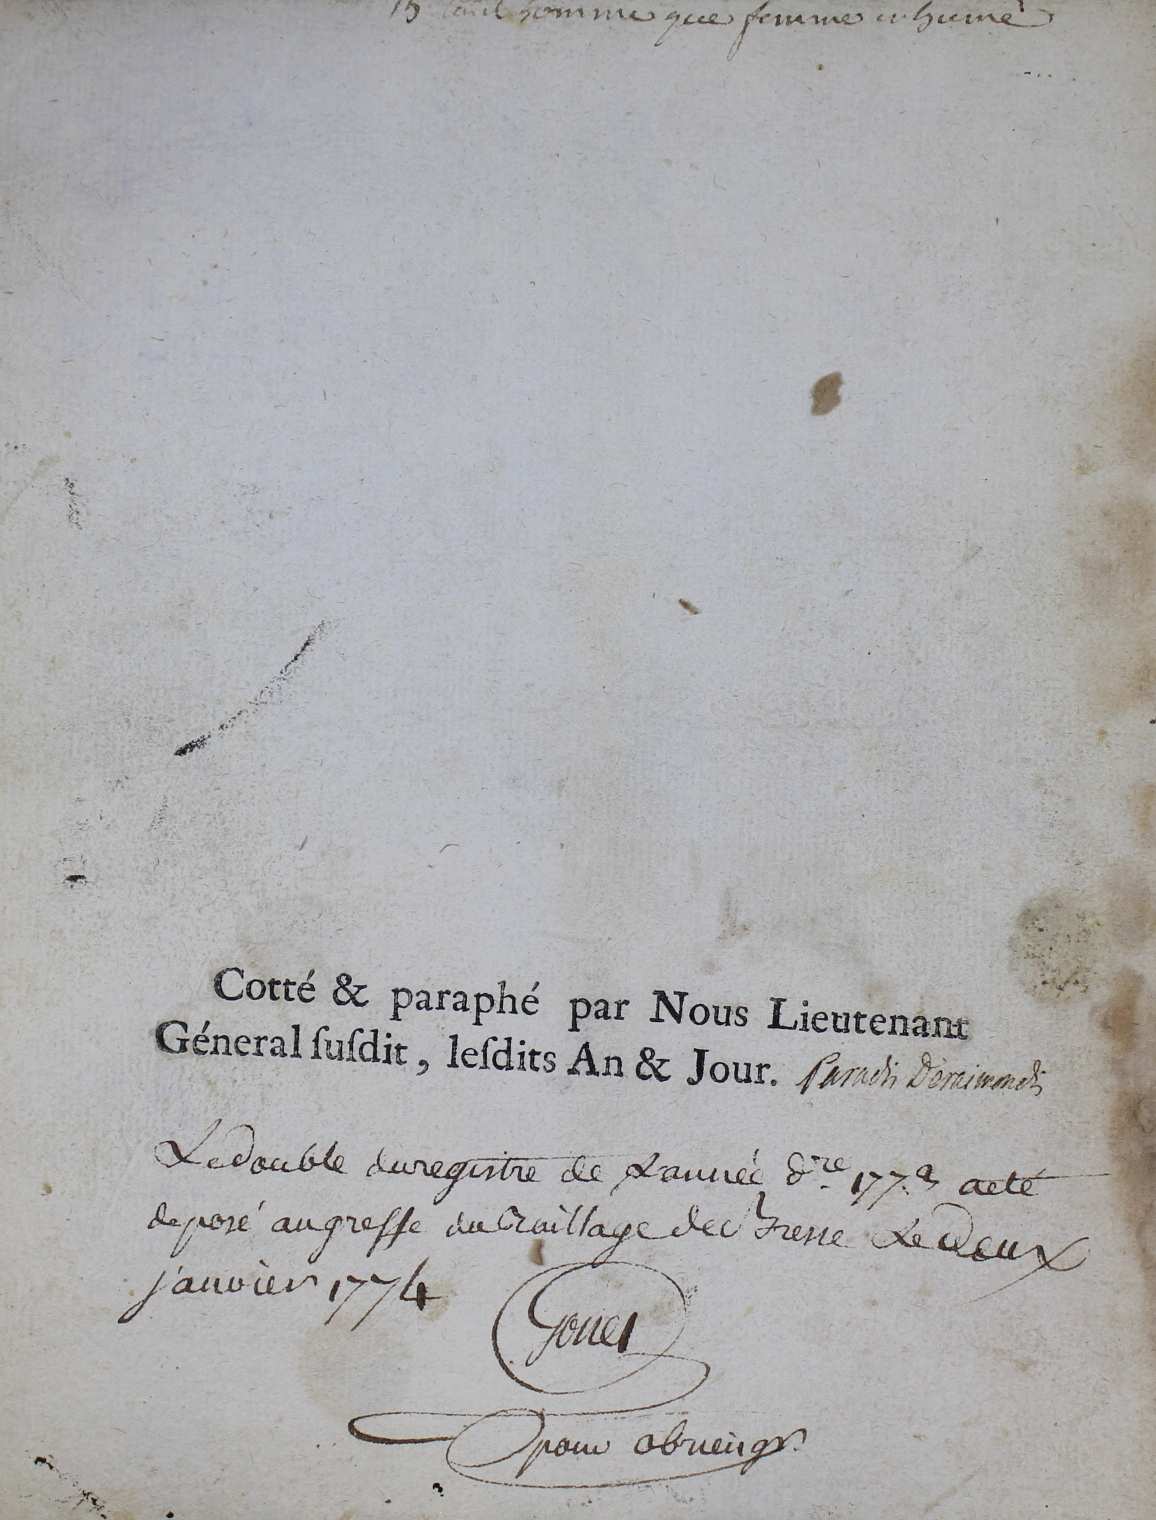 15 tant homme que femme inhumé
Cotté & paraphé par Nous Lieutenant
Géneral ſuſdit, leſdits An & Jour. Paradis Deraimondi
Le double du registre de L'année d.re 1773 a eté
deposé au greffe du Bailliage de Bresse Le Deux
janvier 1774
pour